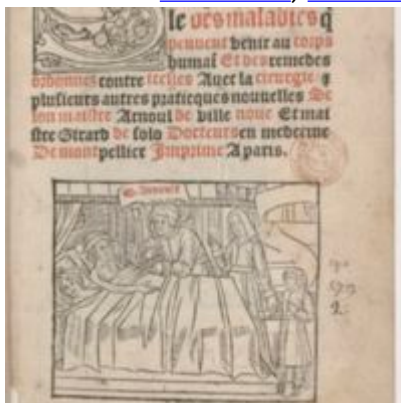 le des maladies q
peuuent venir au corps
humaĩ Et des remedes
ordonnez contre icelles Auec la cirurgie ⁊
plusieurs autres praticques nouuelles Se
lon maistre Arnoul de ville noue Et mai
stre Girard de solo Docteurs en medecine
De montpellier Imprime A paris.